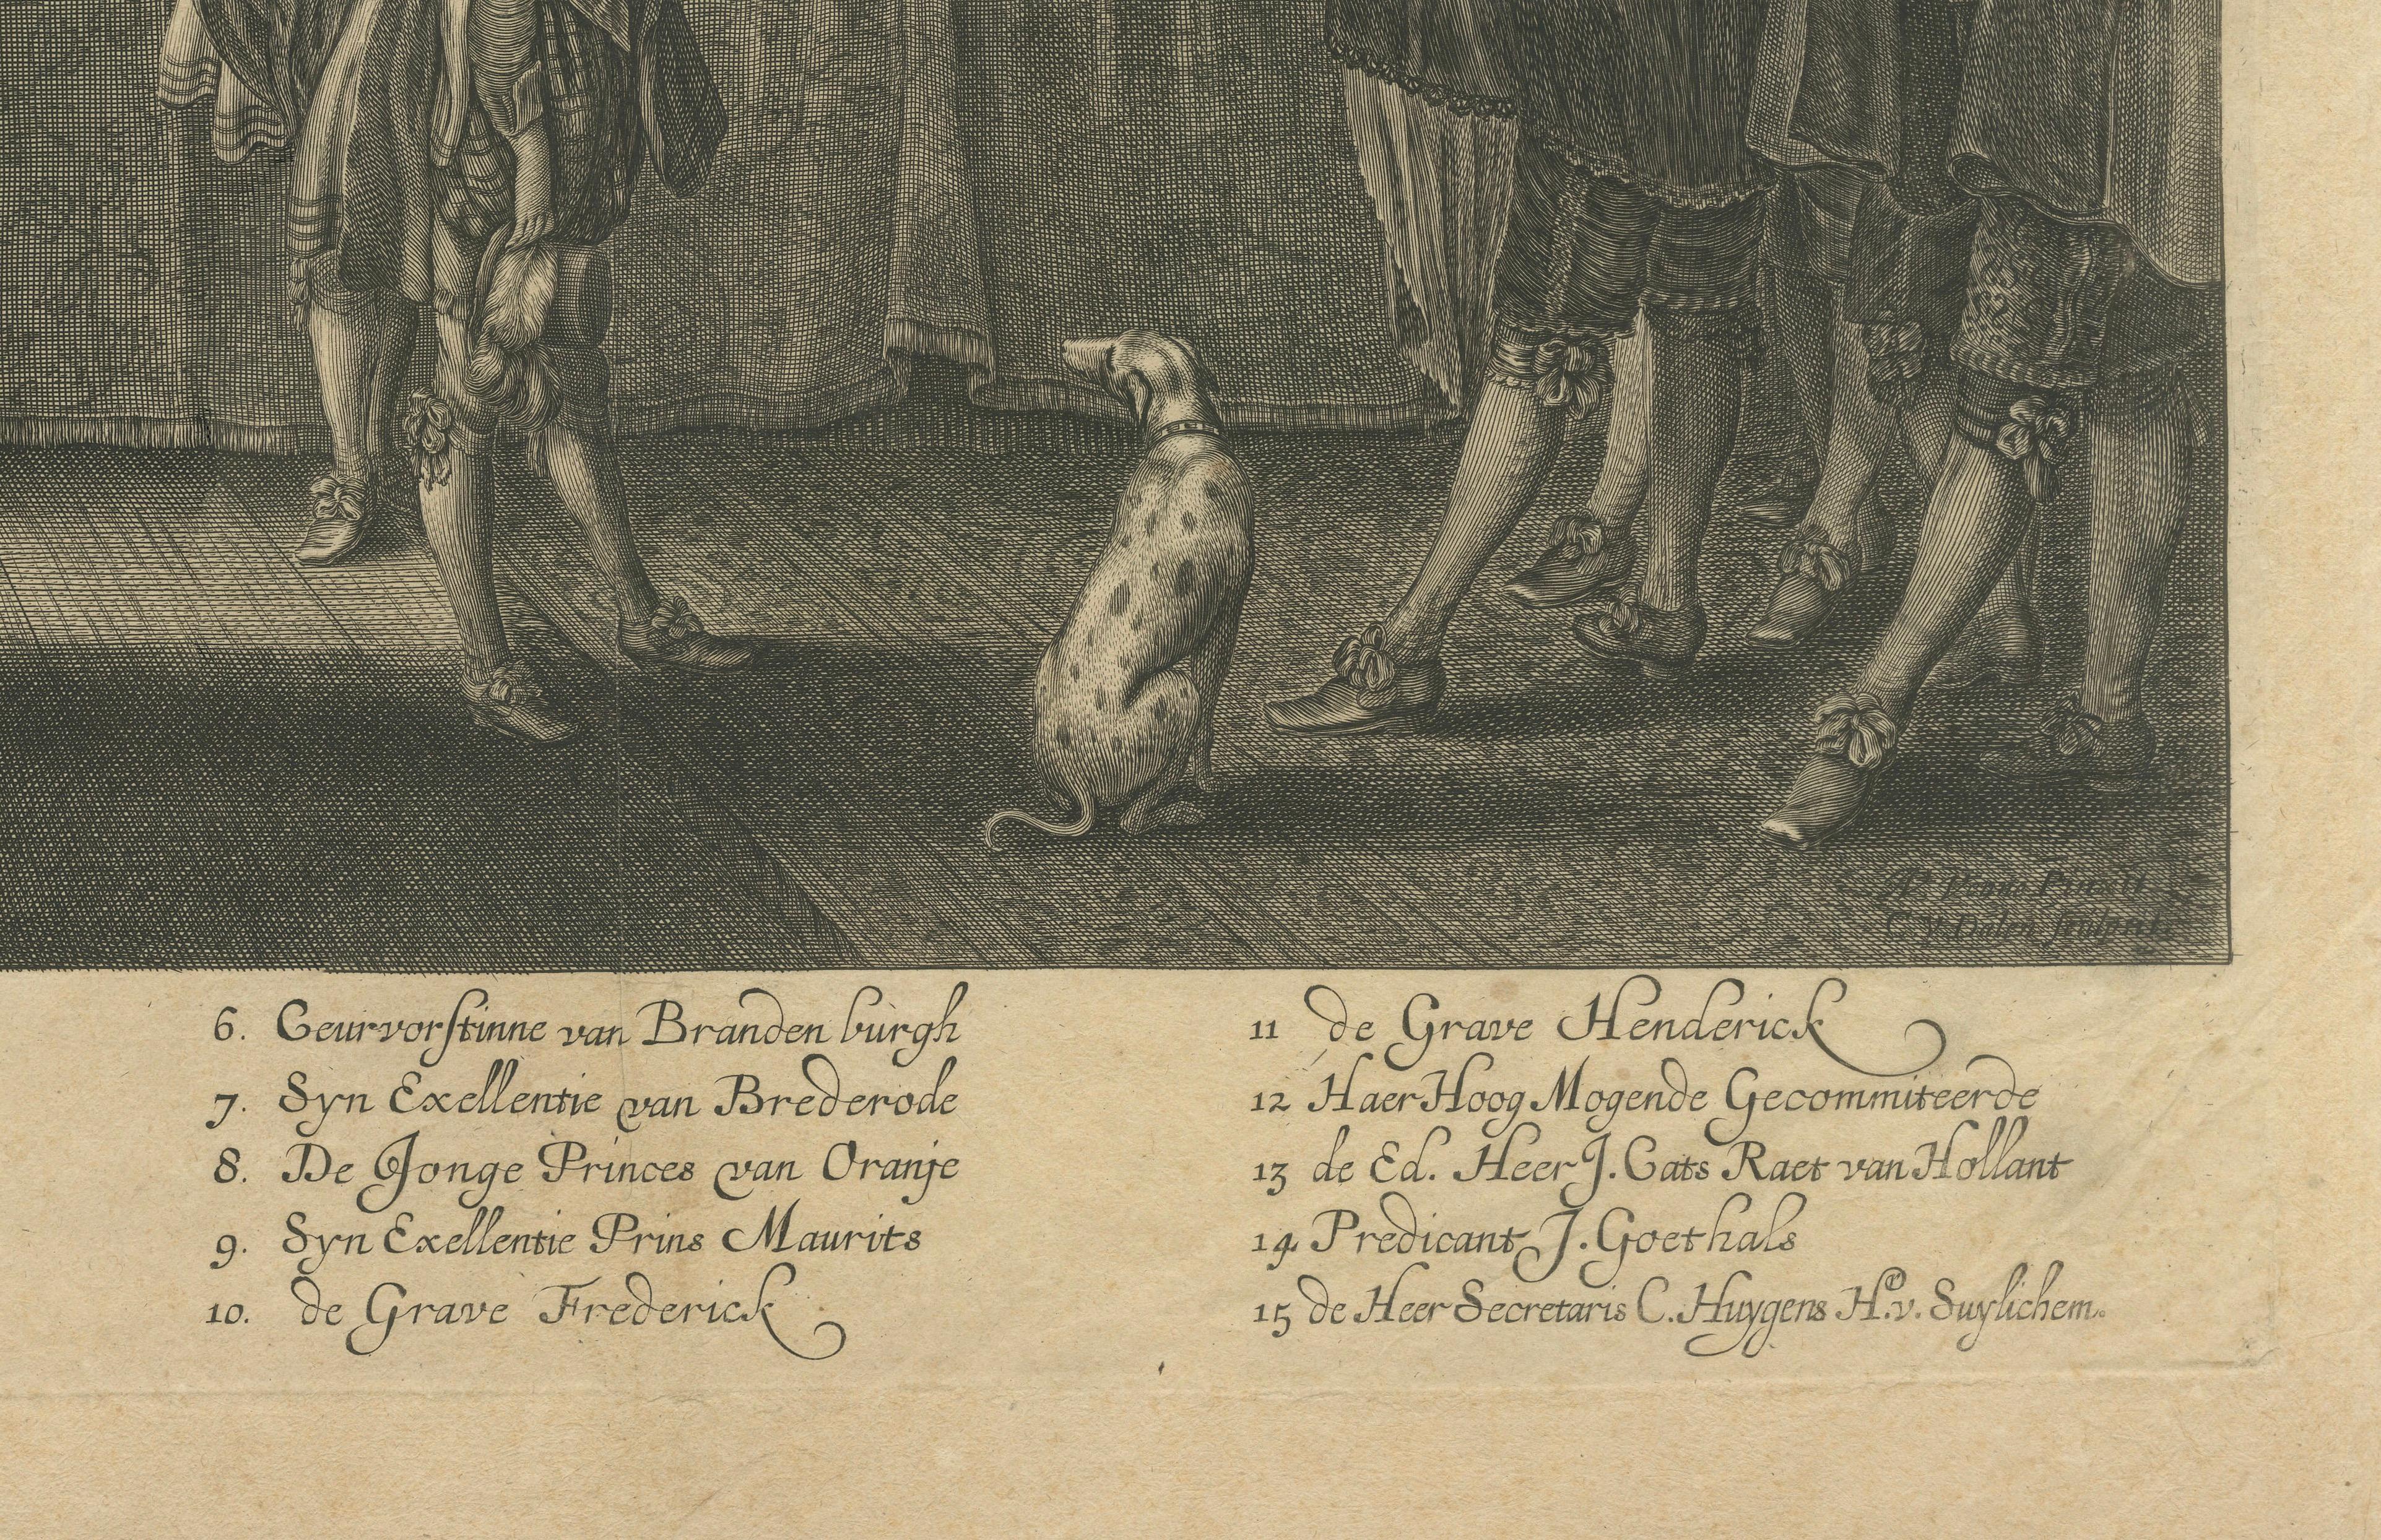 A. v. Venne Pinxit
C. v. Dalen sculpsit
6. Ceurvorstinne van Brandenburgh
7. Syn Exellentie van Brederode
8. De Jonge Princes van Oranje
9. Syn Exellentie Prins Maurits
10. de Grave Frederick
11 de Grave Henderick
12 Haer Hoog Mogende Gecommiteerde
13 de Ed. Heer J. Cats Raet van Hollant
14. Predicant J. Goethals
15 de Heer Secretaris C. Huygens Hr. v. Suylichem.